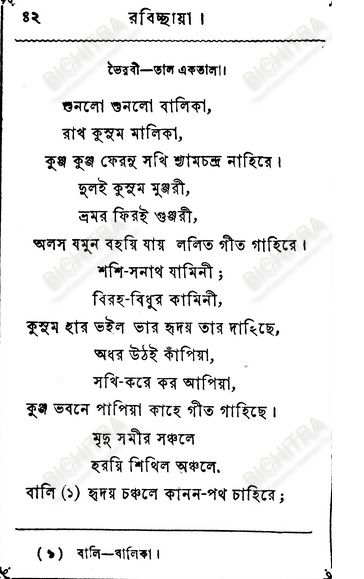 ৪২ রবিচ্ছায়া।
ভৈরবী—তাল একতালা।
শুনলো শুনলো বালিকা,
রাখ কুসুম মালিকা,
কুঞ্জ কুঞ্জ ফেরনু সখি শ্যামচন্দ্র নাহিরে।
দুলই কুসুম মুঞ্জরী,
ভ্রমর ফিরই গুঞ্জরী,
অলস যমুন বহয়ি যায় ললিত গীত গাহিরে।
শশি-সনাথ যামিনী;
বিরহ-বিধুর কামিনী,
কুসুম হার ভইল ভার হৃদয় তার দাহিছে,
অধর উঠই কাঁপিয়া,
সখি-করে কর আপিয়া,
কুঞ্জ ভবনে পাপিয়া কাহে গীত গাহিছে।
মৃদু সমীর সঞ্চলে
হরয়ি শিথিল অঞ্চলে.
বালি (১) হৃদয় চঞ্চলে কানন-পথ চাহিরে;
(১) বালি—বালিকা।
BICHITRA
BICHITRA
BICHITRA
BICHITRA
BICHITRA
BICHITRA